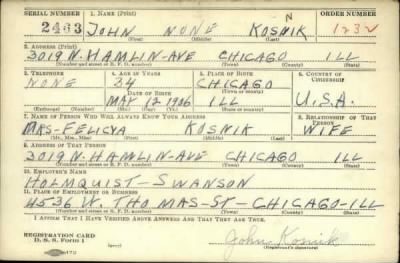 SERIAL NUMBER 1. NAME (Print) ORDER NUMBER
2463 JOHN NONE KOSNIK N 1232
(First) (Middle) (Last)
2. ADDRESS (Print)
3019 N. HAMLIN-AVE CHICAGO ILL
(Number and street or R. F. D. number) (Town) (County) (State)
3. TELEPHONE 4. AGE IN YEARS 5. PLACE OF BIRTH 6. COUNTRY OF CITIZENSHIP
NONE 34 CHICAGO
DATE OF BIRTH (Town or county)
MAY 12 1906 ILL U.S.A.
(Exchange) (Number) (Mo.) (Day) (Yr.) (State or country)
7. NAME OF PERSON WHO WILL ALWAYS KNOW YOUR ADDRESS 8. RELATIONSHIP OF THAT PERSON
MRS-FELICYA KOSNIK WIFE
(Mr., Mrs., Miss) (First) (Middle) (Last)
9. ADDRESS OF THAT PERSON
3019 N. HAMLIN-AVE CHICAGO ILL
(Number and street or R. F. D. number) (Town) (County) (State)
10. EMPLOYER'S NAME
HOLMQUIST-SWANSON
11. PLACE OF EMPLOYMENT OR BUSINESS
4536 W. THOMAS-ST-CHICAGO-ILL
(Number and street or R. F. D. number) (Town) (County) (State)
I AFFIRM THAT I HAVE VERIFIED ABOVE ANSWERS AND THAT THEY ARE TRUE.
REGISTRATION CARD
D. S. S. Form 1 (over) John Kosnik
(Registrant's signature)